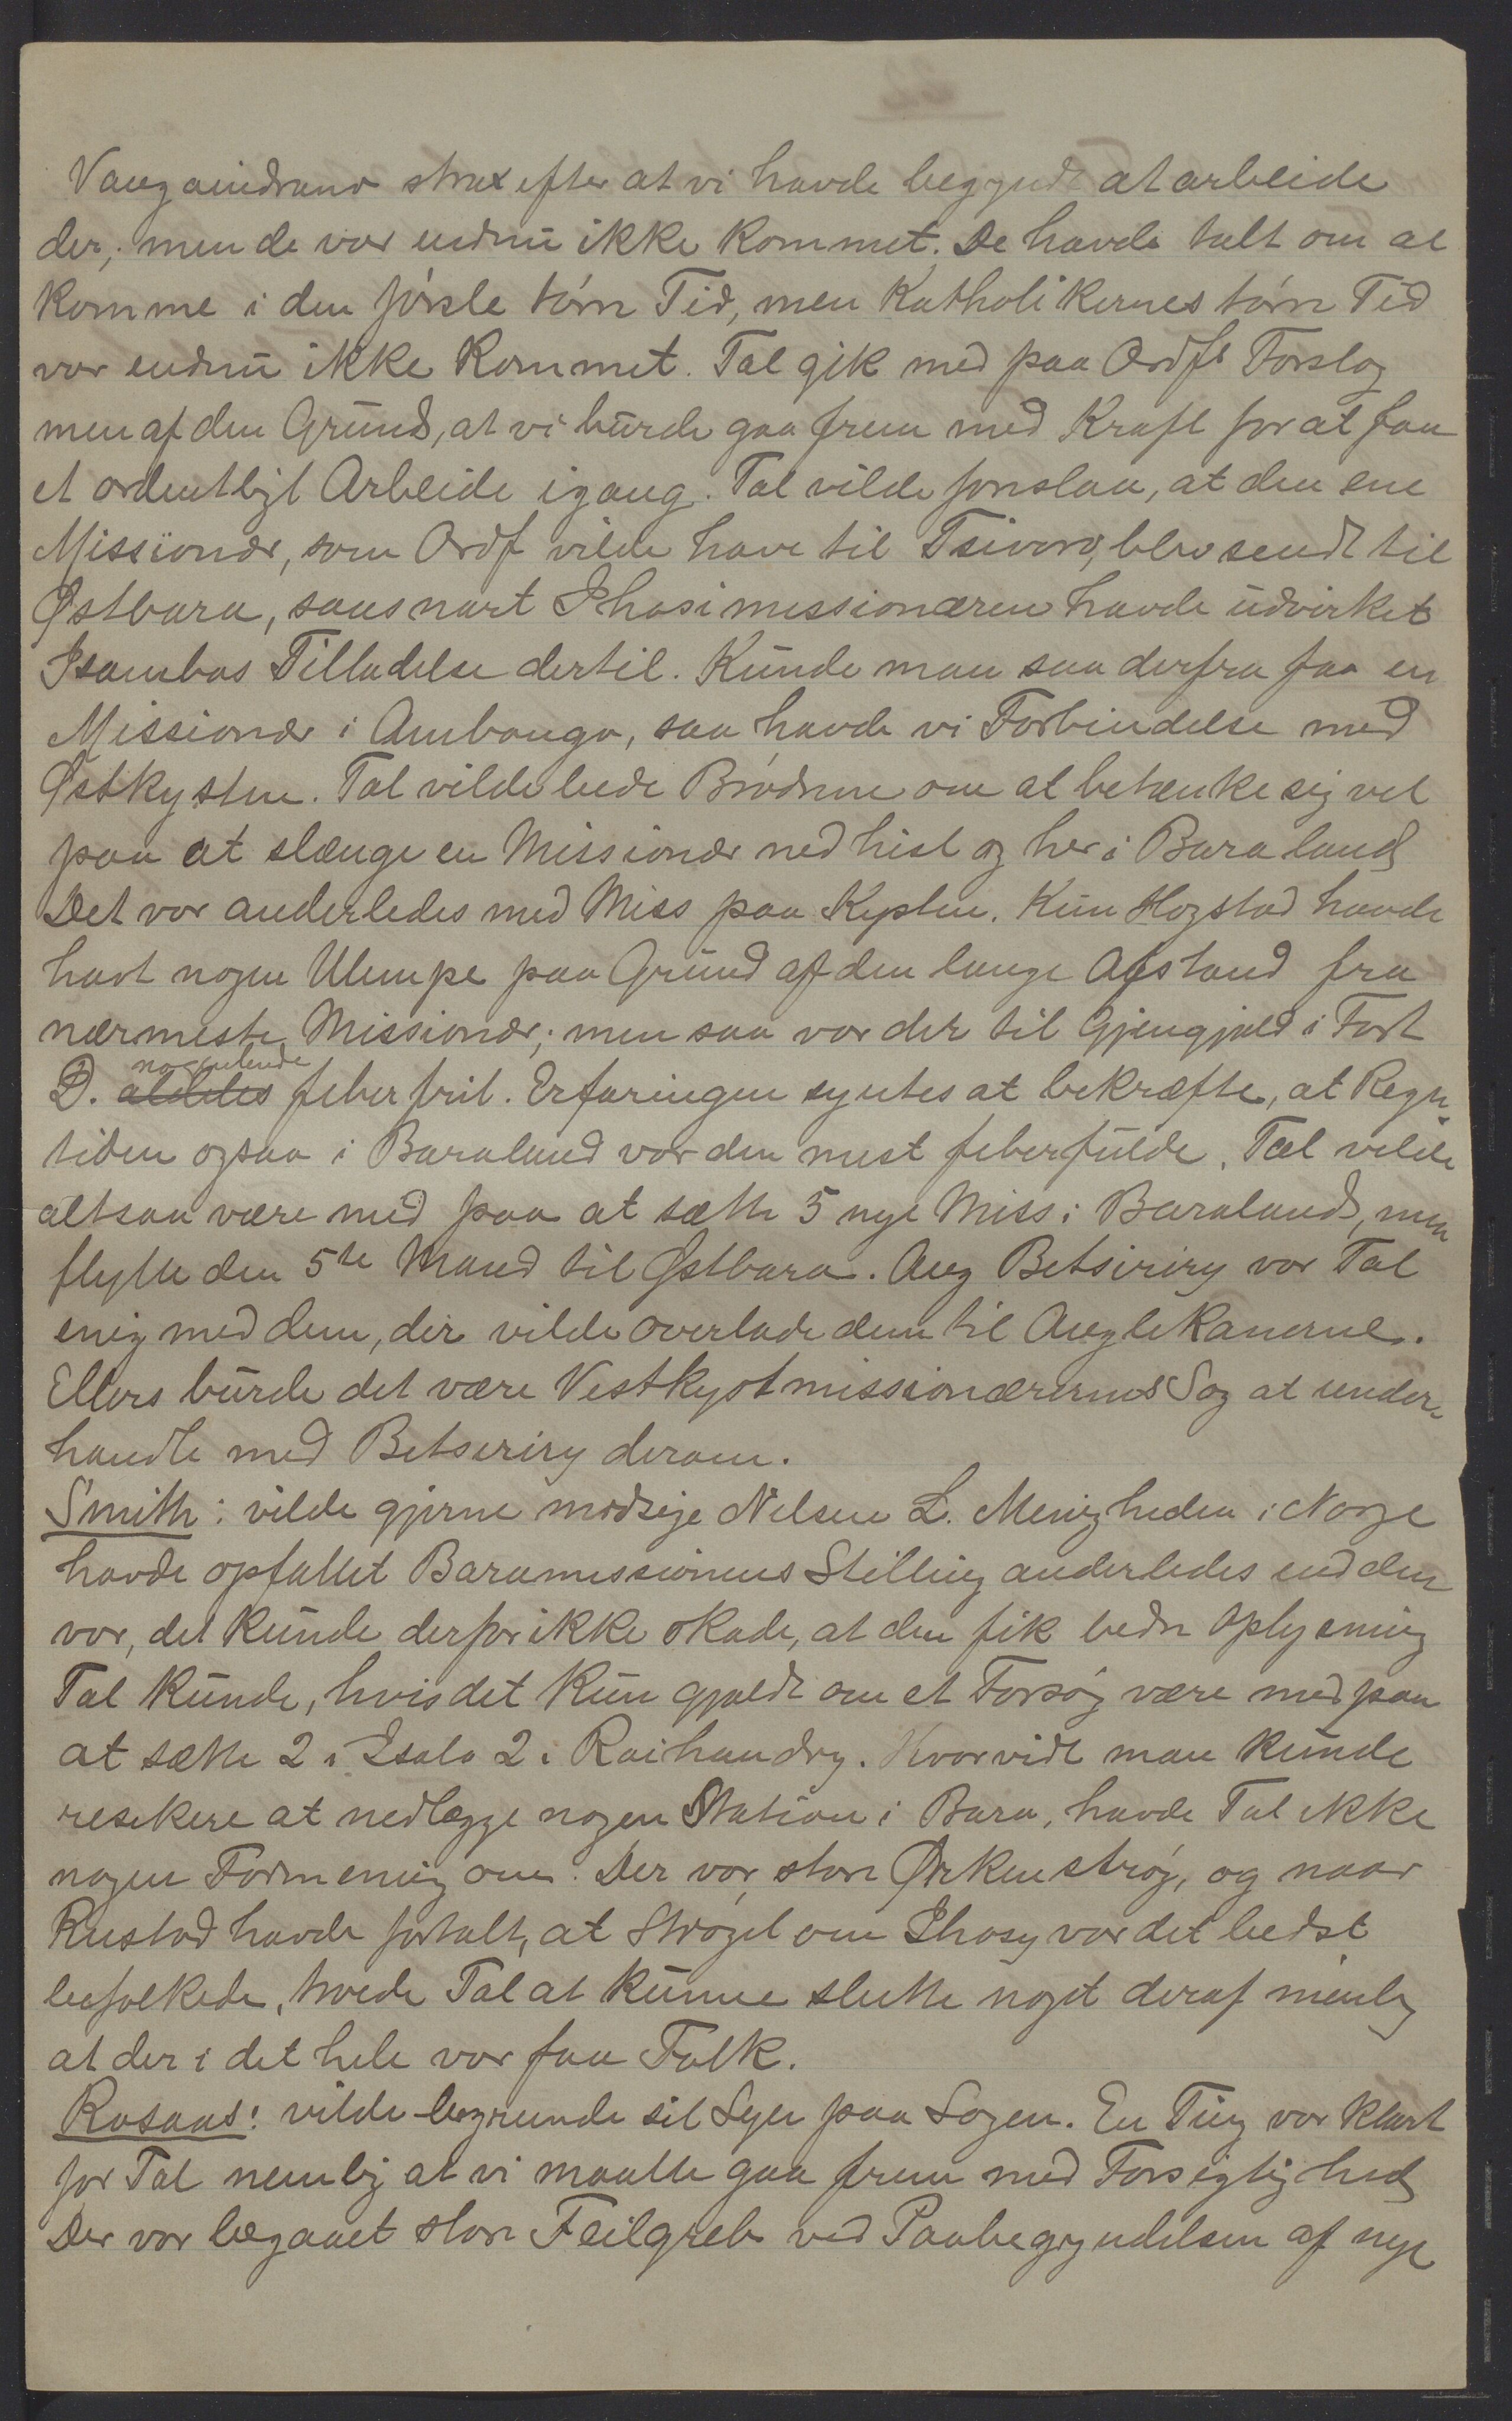 Vangaindrano strax efter at vi havde begyndt at arbeide
der; men de var endnu ikke kommet. De havde talt om at
komme i den første tørre Tid, men Katholikernes tørre Tid
var endnu ikke kommet. Tal gik med paa Ordfs Forslag
men af den Grund, at vi burde gaa frem med Kraft for at faa
et ordentligt Arbeide igang. Tal vilde foreslaa, at den ene
Missionær, som Ordf vilde have til Tsivory, blev sendt til
Østbara, saasnart Ihosimissionæren havde udvirket
Isambos Tilladelse dertil. Kunde man saa derfra faa en
Missionær i Ambongo, saa havde vi Forbindelse med
Østkysten. Tal vilde bede Brødrene om at betænke sig vel
paa at slænge en Missionær ned hist og her i Baraland
Det var anderledes med Miss paa Kysten. Kun Hogstad havde
havt nogen Ulempe paa Grund af den lange Afstand fra
nærmeste Missionær; men saa var der til Gjengjæld i Fort
D. aldeles nogenlunde feberfrit. Erfaringen syntes at bekræfte, at Regn-
tiden ogsaa i Baraland var den mest feberfulde. Tal vilde
altsaa være med paa at sætte 5 nye Miss i Baraland, men
flytte den 5te Mand til Østbara. Ang Betsiriry var Tal
enig med dem, der vilde overlade dem til Anglekanerne.
Ellers burde det være Vestkystmissionærernes Sag at under-
handle med Betseriry derom.
Smith: vilde gjerne modsige Nelsen L. Menigheden i Norge
havde opfattet Baramissionens Stilling anderledes end den
var, det kunde derfor ikke skade, at den fik bedre Oplysning
Tal kunde, hvis det kun gjaldt om et Forsøg være med paa
at sætte 2 i Isalo 2 i Raihandry. Hvorvidt man kunde
resikere at nedlægge nogen Station i Bara, havde Tal ikke
nogen Formening om. Der var store Ørkenstrøg, og naar
Rustad havde fortalt, at Strøget om Ihosy var det bedst
befolkede, troede Tal at kunne slutte noget deraf nemlig
at der i det hele var faa Folk.
Rosaas: vilde begrunde sit Syn paa Sagen. En Ting var klart
for Tal nemlig at vi maatte gaa frem med Forsigtighed
Der var begaaet store Feilgreb ved Paabegyndelsen af nye